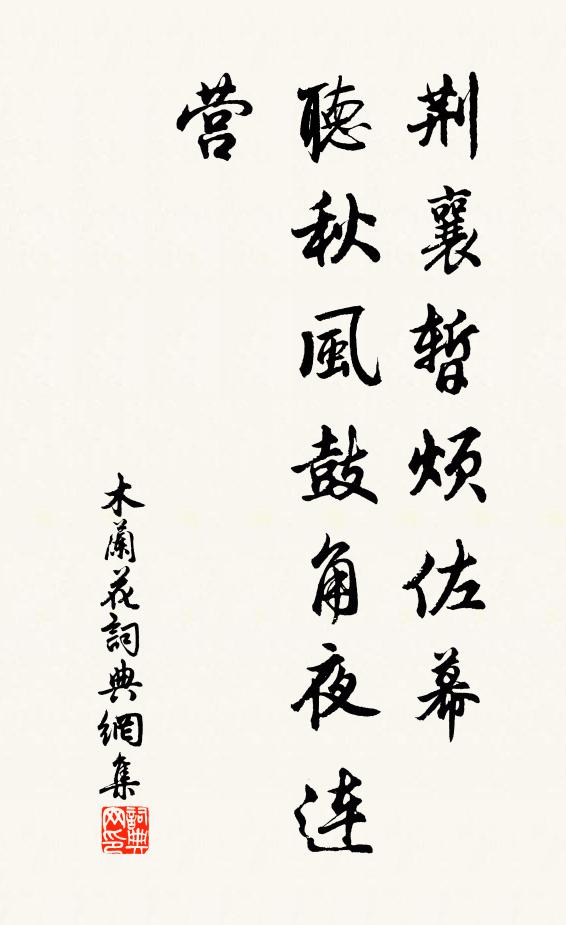 荆襄暫烦佐幕
聽秋風鼓角夜连
营
木蘭花詞典網集
詞典
网印